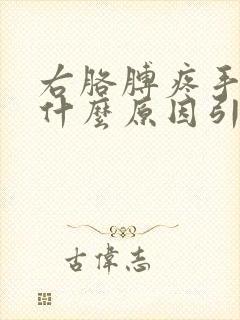 右胳膊疼手
什麼原因引
古偉志